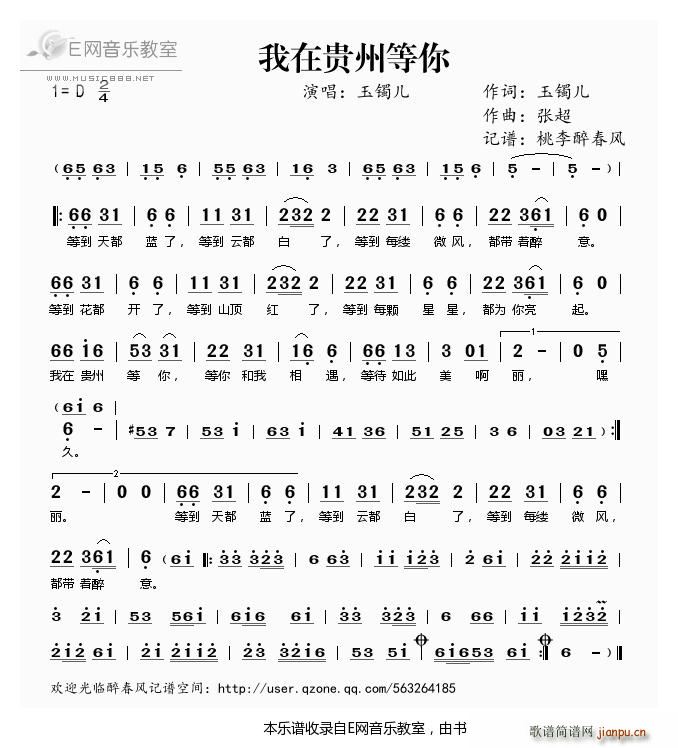 E网音乐教室
WWW.MUSIC888.NET
我在贵州等你
1=D 2/4
演唱：玉镯儿
作词：玉镯儿
作曲：张超
记谱：桃李醉春风
(65 63 | 15 6 | 55 63 | 16 3 | 65 63 | 15 6 | 5 - | 5 - )|
‖: 66 31 | 6 6 | 11 31 | 232 2 | 22 31 | 6 6 | 22 361 | 6 0 |
等到 天都 蓝 了，等到 云都 白 了，等到 每缕 微 风，都带 着醉 意。
66 31 | 6 6 | 11 31 | 232 2 | 22 31 | 6 6 | 22 361 | 6 0 |
等到 花都 开 了，等到 山顶 红 了，等到 每颗 星 星，都为 你亮 起。
66 16 | 53 31 | 22 31 | 16 6 | 66 13 | 3 01 | 1 2 - | 0 5 |
我在 贵州 等 你，等你 和我 相 遇，等待 如此 美 啊 丽，嘿
(6i 6 |
6 - | #53 7 | 53 i | 63 i | 41 36 | 51 25 | 3 6 | 03 21 ):‖
久。
2
2 - | 0 0 | 66 31 | 6 6 | 11 31 | 232 2 | 22 31 | 6 6 |
丽。 等到 天都 蓝 了，等到 云都 白 了，等到 每缕 微 风，
22 361 | 6 (6i ‖: 33 323 | 6 63 | ii i23 | 2 6i | 22 2ii2 |
都带 着醉 意。
3 2i | 53 56i | 6i6 6i | 33 332 | 323 323 | 6 66 | ii i232 |
2i2 6i | 2i 2ii2 | 33 32i6 | 53 5i | 6i653 6i :‖ 6 - )‖
欢迎光临醉春风记谱空间：http://user.qzone.qq.com/563264185
本乐谱收录自E网音乐教室，由书
歌谱简谱网
jianpu.cn